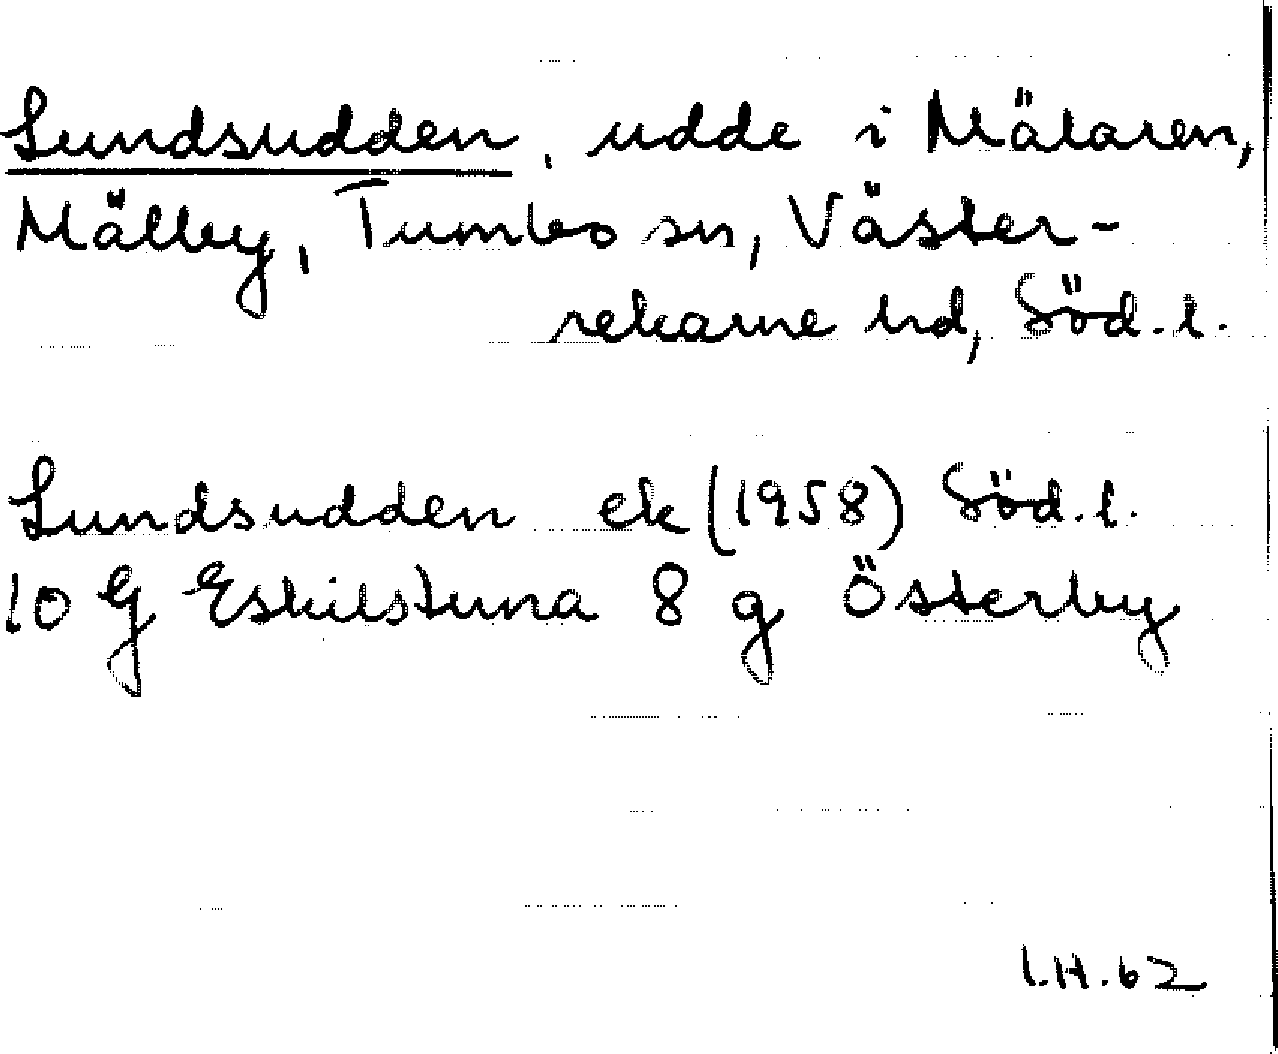 Lundsudden, udde i Mälaren,
Mälby, Tumbo sn, Väster-
rekarne hd, Söd. l.
Lundsudden ek (1958) Söd. l.
10 G Eskilstuna 8 g Österby
I.H. 62